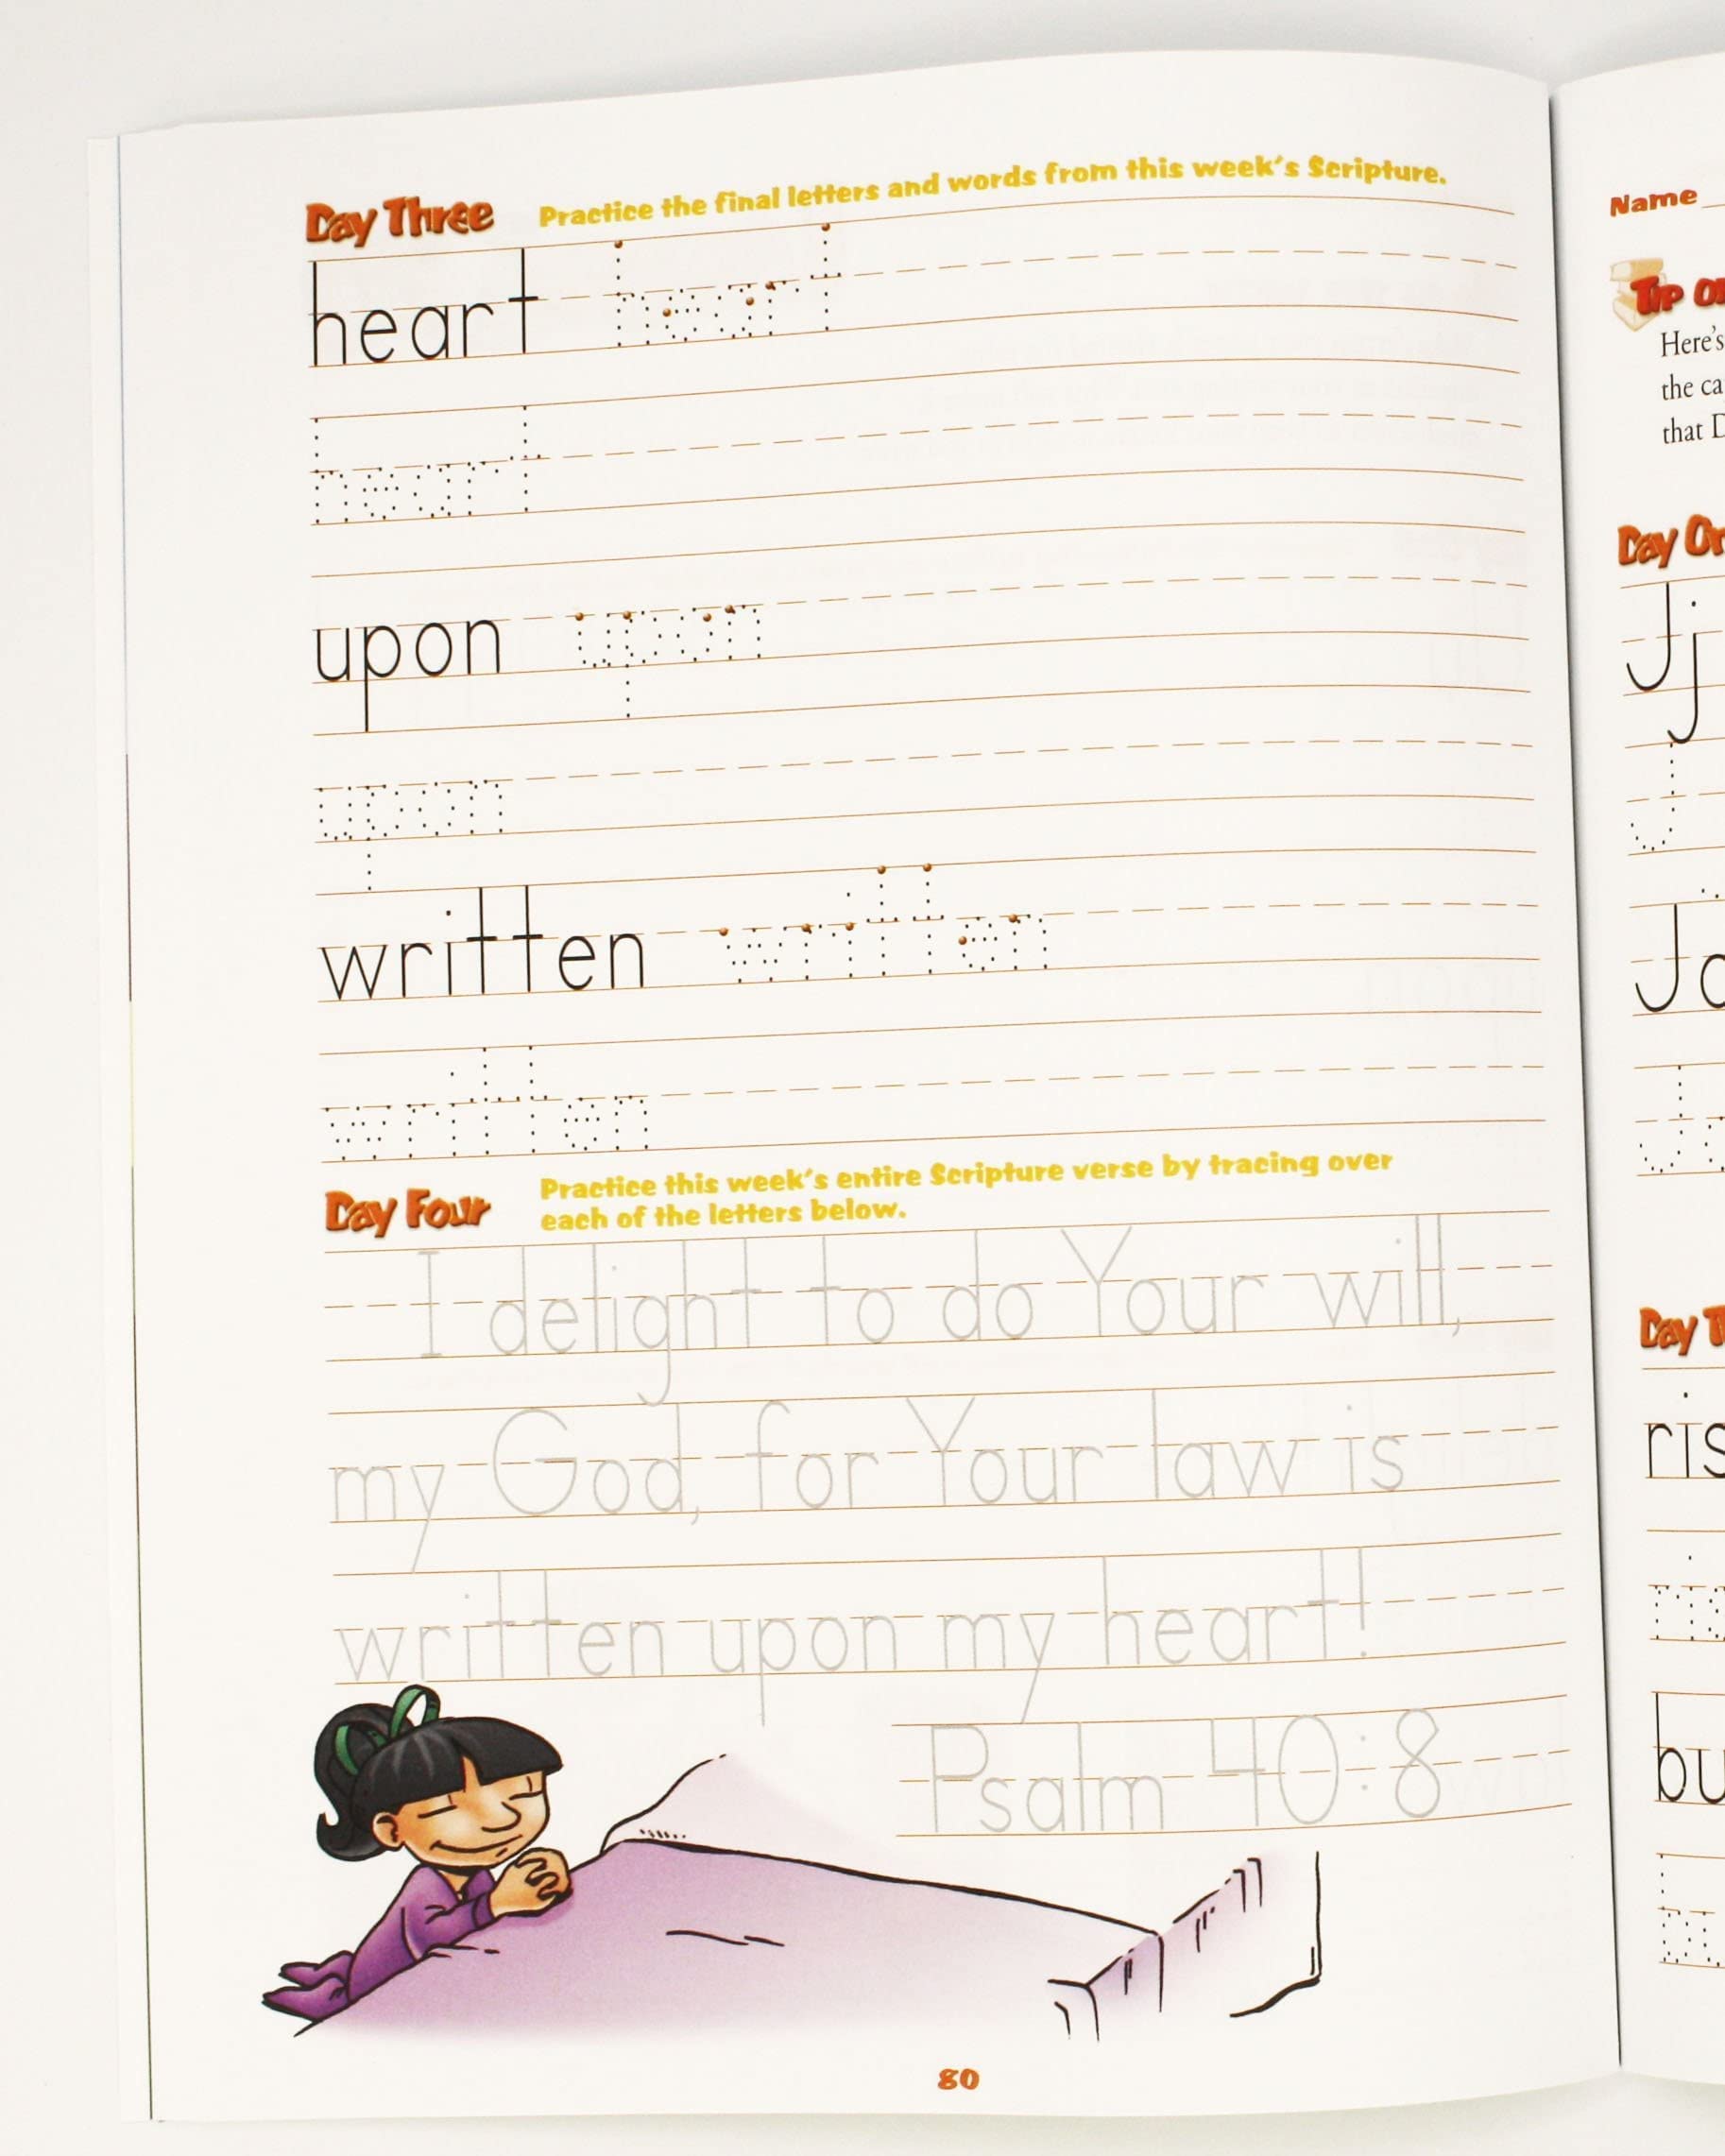 Day Three Practice the final letters and words from this week's Scripture.
heart heart
heart
upon upon
upon
written written
written
Day Four Practice this week's entire Scripture verse by tracing over
each of the letters below.
I delight to do Your will,
my God, for Your law is
written upon my heart!
Psalm 40:8
80
Name
Tip
Here's
the
that
Day
Jj
J
Day